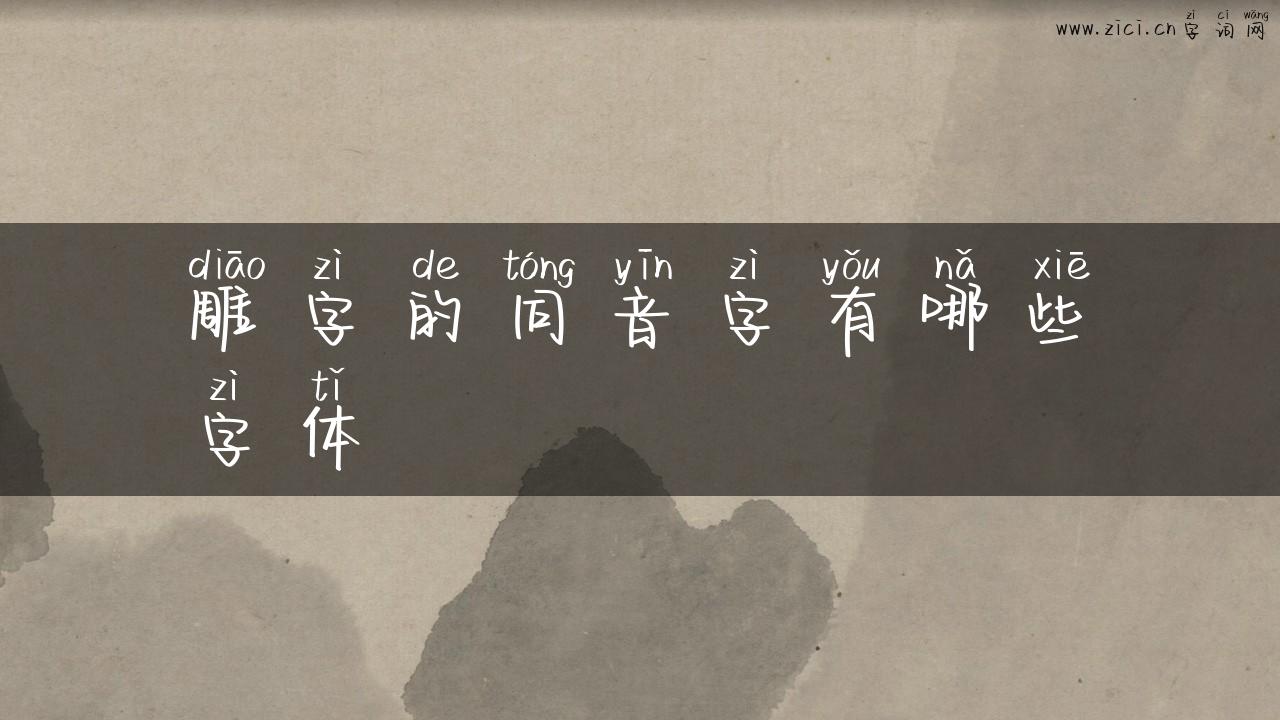 zì cí wǎng
www.zici.cn字词网
diāo zì de tóng yīn zì yǒu nǎ xiē
雕字的同音字有哪些
zì tǐ
字体